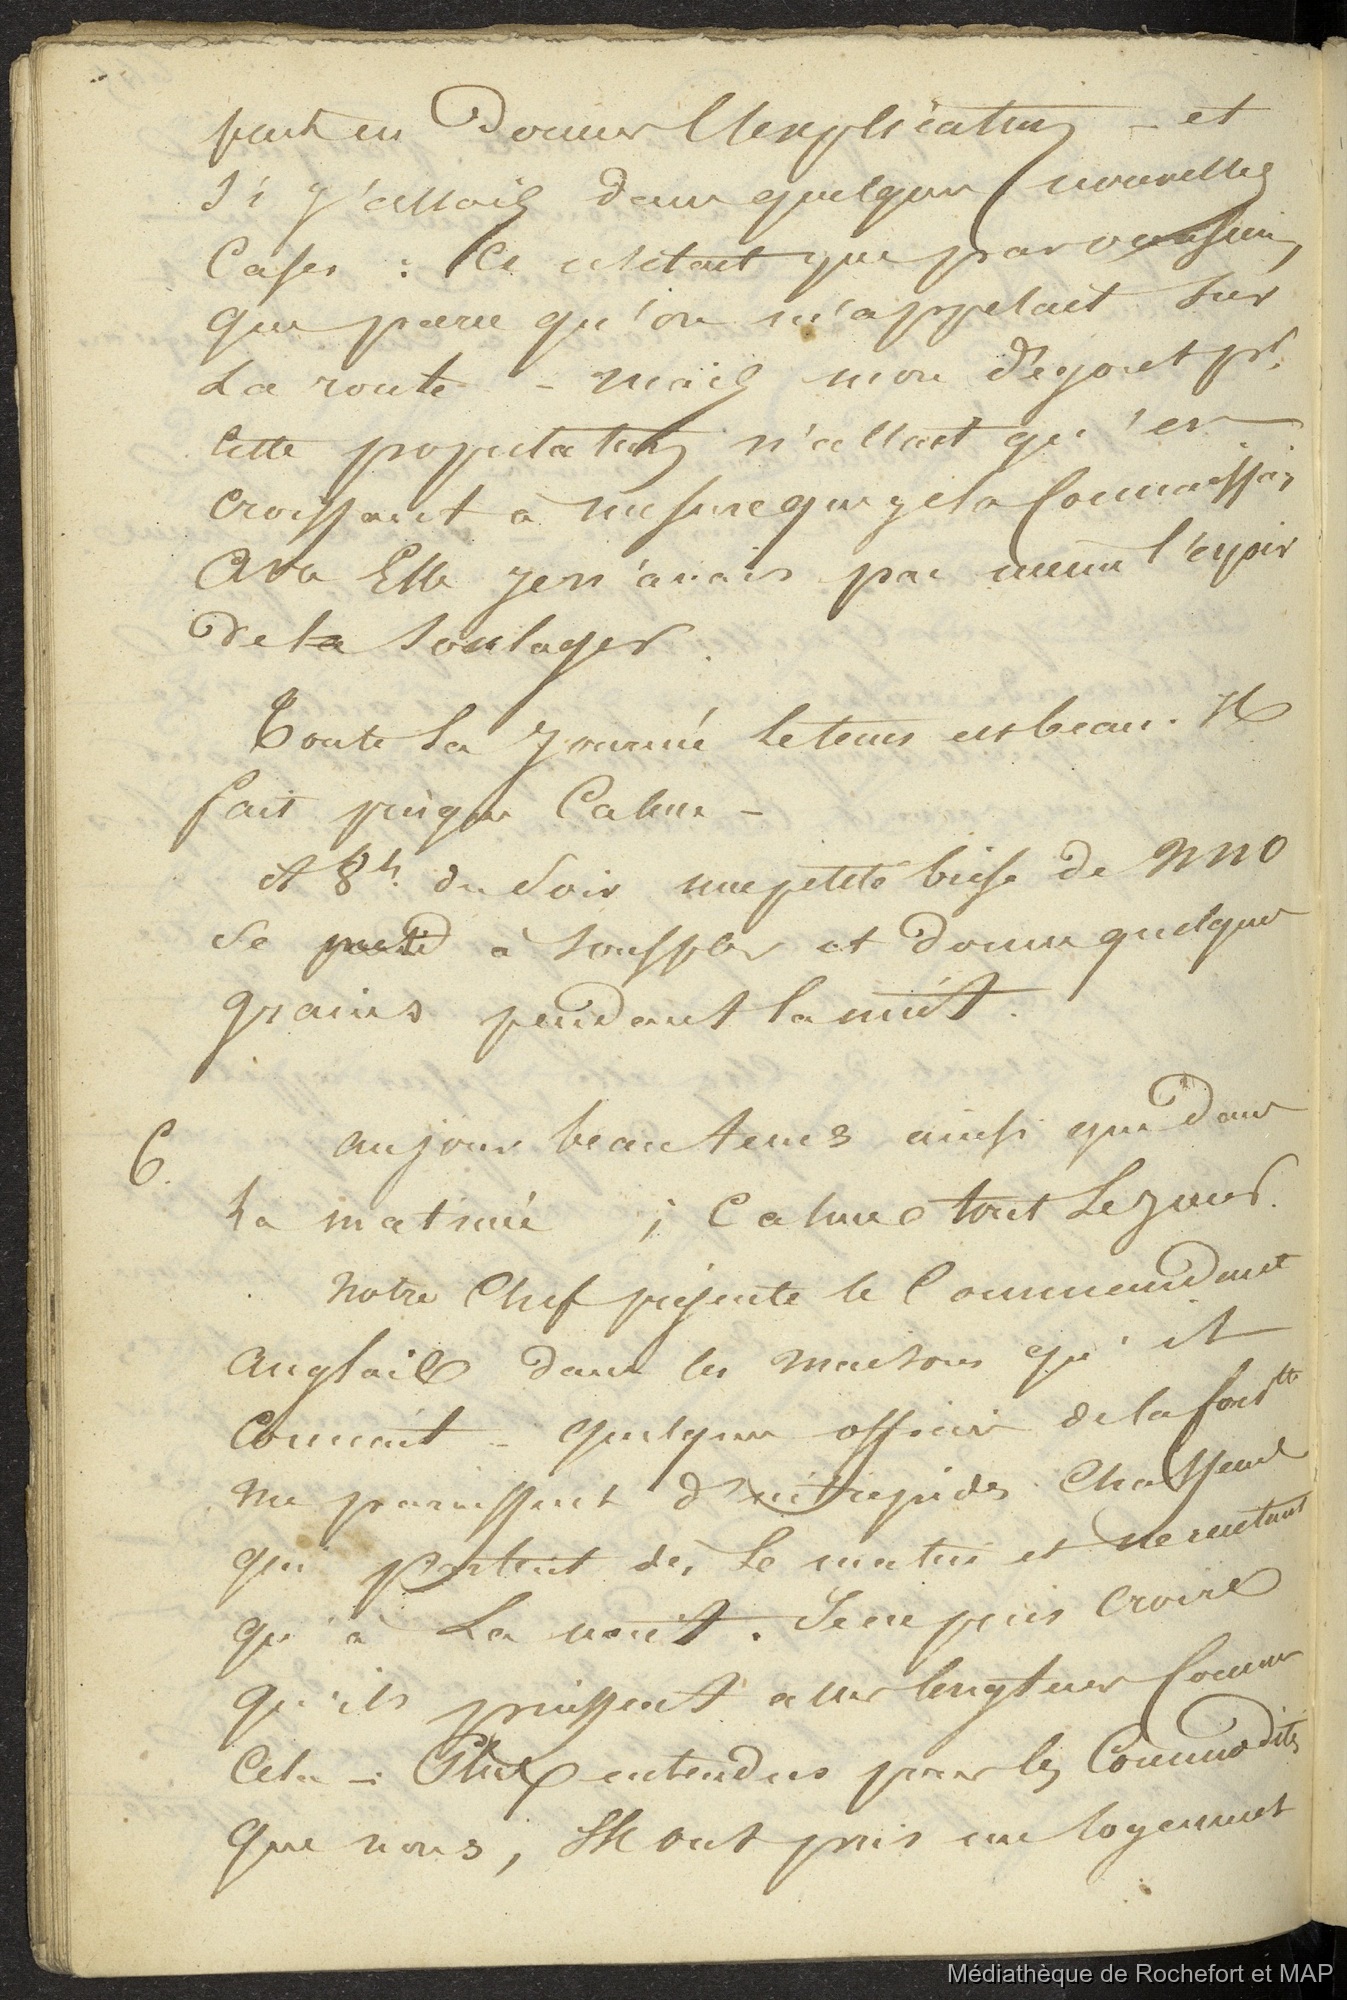 fait en donner l'explication – et
si j'allais dans quelques nouvelles
Cases : Ce n'était que par occasion,
que parce qu'on m'appelait sur
La route – mais mon dégout pr.
Cette population n'allait qu'en
croissant à mesure que je la Connaissais
Avec Elle je n'avais pas même l'espoir
de la soulager.
Toute la journée le tems est beau. Il
fait presque Calme –
A 8h. du soir une petite brise de NNO
se met à souffler et donne quelques
grains pendant la nuit.
6. au jour beau tems ainsi que dans
La matinée ; Calme tout Le jour.
Notre Chef présente le Commandant
Anglais dans les maisons qu'il
Connait – quelques officiers de la forette
me paraissent d'intrépides Chasseurs
qui partent dès Le matin et ne rentrent
qu'à La nuit. Je ne puis croire
qu'ils puissent aller longtems Comme
Cela – Plus entendus pour les Commodités
que nous, Ils ont pris un logement
Médiathèque de Rochefort et MAP